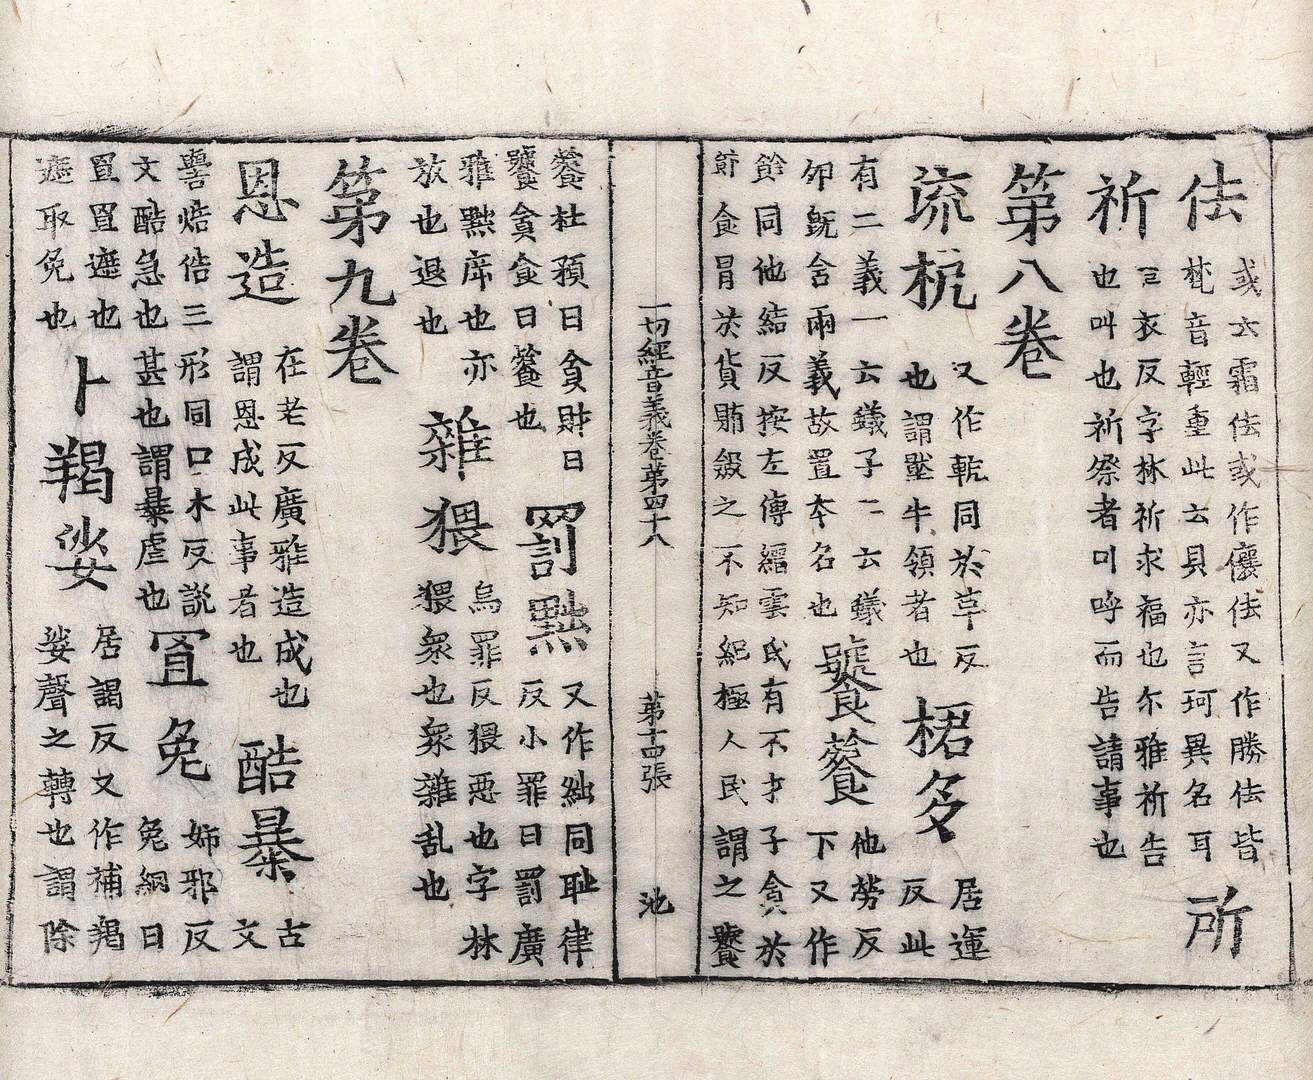 佉 或云霜佉或作儴佉又作勝佉皆
梵音輕重此云貝亦言珂異名耳 所
祈 三衣反字林祈求福也尔雅祈告
也叫也祈祭者叫呼而告請事也
第八卷
又作軛同於革反
也謂壓牛領者也 桾多 居運
反此
有二義一云蟻子二云蟻
卵既含兩義故置本名也 饕餮 他勞反
下又作
飻同他結反按左傳縉雲氏有不才子貪於
飲食冒於貨賄斂之不知紀極人民謂之饕
一切經音義卷第四十八 第十四張 池
餮杜預曰貪財曰
饕貪食曰餮也 罰黜 又作絀同耻律
反小罪曰罰廣
雅黜㡿也亦
放也退也 雜猥 烏罪反猥惡也字林
猥衆也衆雜乱也
第九卷
恩造 在老反廣雅造成也
謂恩成此事者也 酷暴 古
文
嚳焅俈三形同口木反説
文酷急也甚也謂暴虐也 罝兔 姊邪反
兔網曰
罝罝遮也
遮取兔也 卜羯娑 居謁反又作補羯
娑聲之轉也謂除